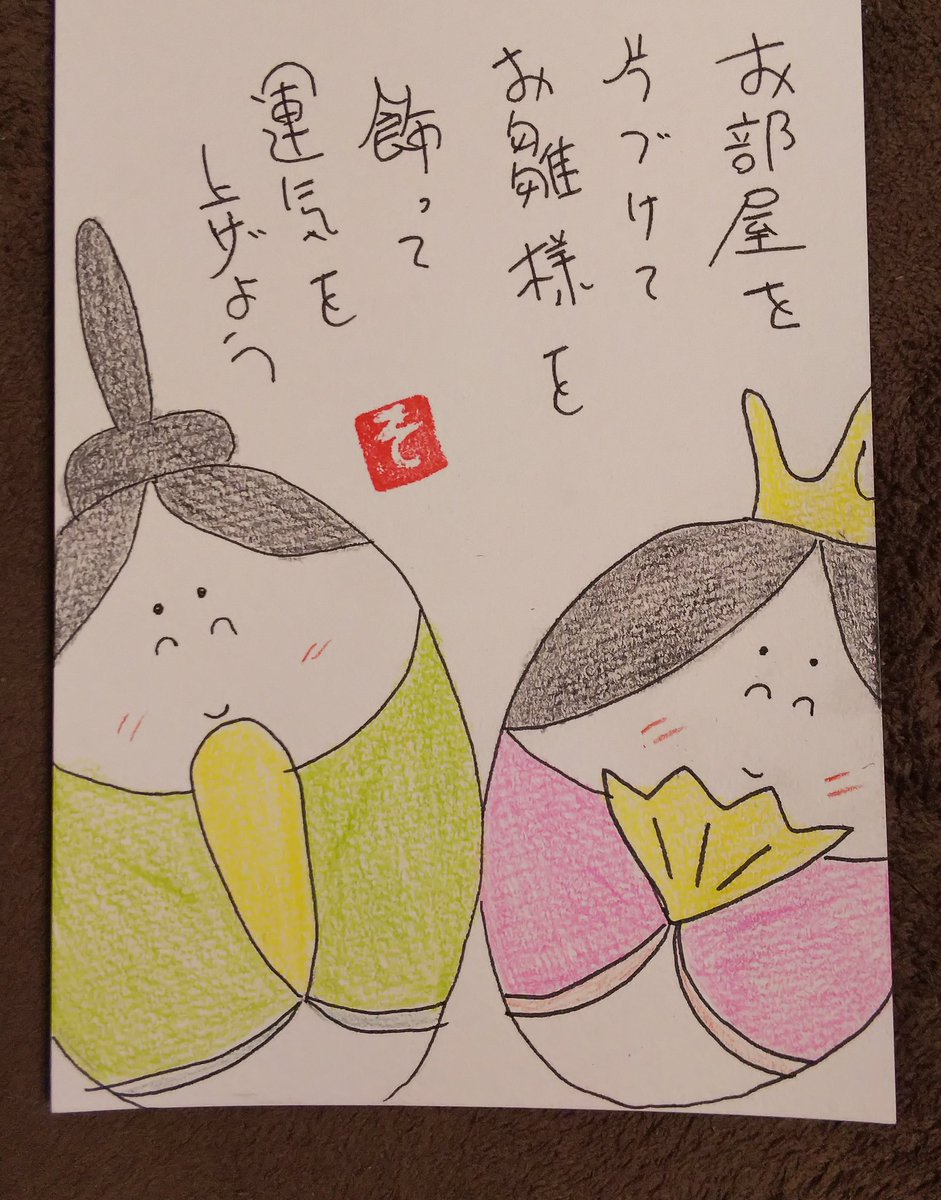 お部屋を
片づけて
お雛様を
飾って
運気を
上げよう
そ